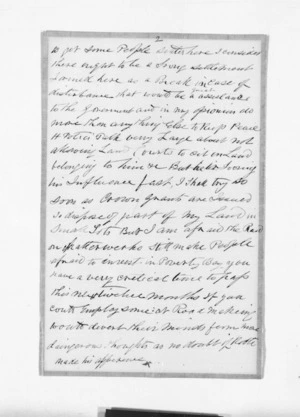 2
to get some People settled here I consider
there ought to be a Strong settlement
formed here as a Break in case of
disturbance that would be a great assistance
to the Government and in my opinion do
more than any thing Else to Keep Peace
Te Talk very Large about not
allowing Land Courts to sit on Land
belonging to him &c But he is loosing
his Influence fast, I shall try so
soon as Crown Grants are issued
to dispose of part of my Land in
Small lots But I am afraid the Raid
on will make People
afraid to invest in Poverty Bay you
have a very critical time to pass
this next twelve months If you
could Employ some at Road making
would divert their Minds from more
dangerous thoughts as no doubt
made his appearance